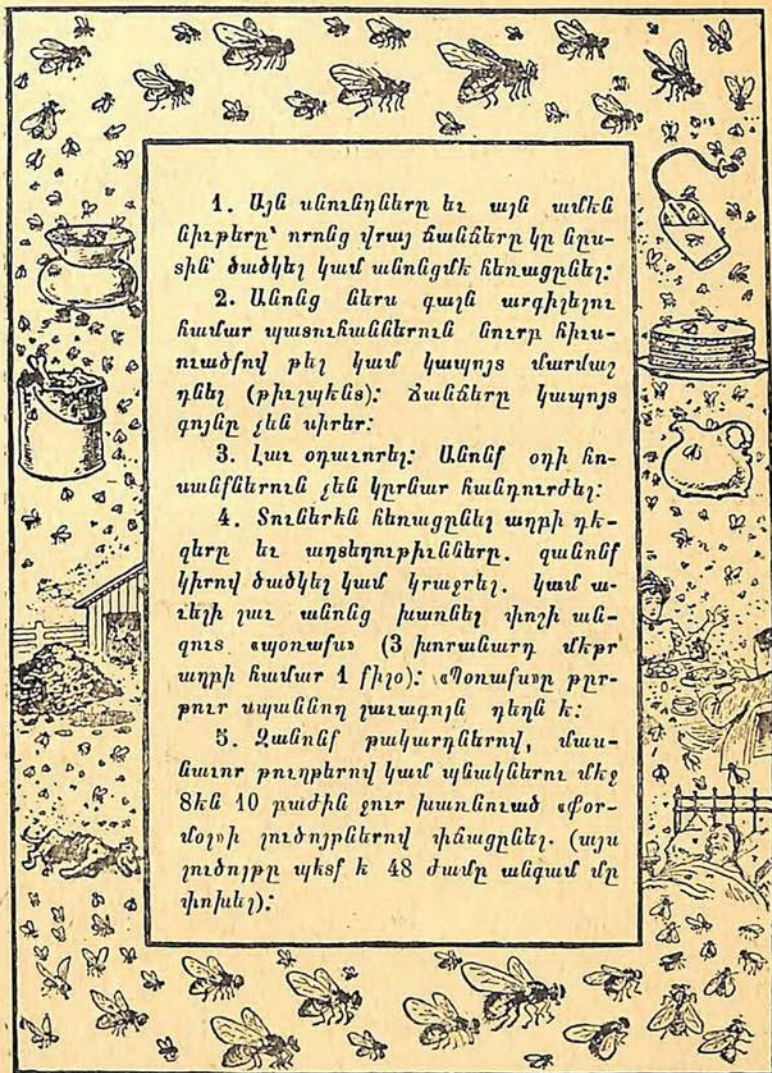 1. Այն սնունդները եւ այն ամէն
նիւթերը՝ որոնց վրայ ճանճերը կը նըս-
տին՝ ծածկել կամ անոնցմէ հեռացընել։
2. Անոնց ներս գալն արգիլելու
համար պատուհաններուն նուրբ հիւս-
ուածքով թել կամ կապոյտ մարմաշ
դնել (թիւլպէնտ)։ Ճանճերը կապոյտ
գոյնը չեն սիրեր։
3. Լաւ օդաւորել։ Անոնք օդի հո-
սանքներուն չեն կըրնար հանդուրժել։
4. Տուներէն հեռացընել աղբի դէ-
զերը եւ աղտեղութիւնները. զանոնք
կիրով ծածկել կամ կրաջրել. կամ ա-
ւելի լաւ անոնց խառնել փոշի ան-
գուտ «պօռաքս» (3 խորանարդ մեթր
աղբի համար 1 քիլօ)։ «Պօռաքս»ը թըր-
թուր սպաննող լաւագոյն դեղն է։
5. Զանոնք թակարդներով, մաս-
նաւոր թուղթերով կամ պնակներու մէջ
8էն 10 բաժին ջուր խառնուած «ֆօր-
մօլ»ի լուծոյթներով փճացընել. (այս
լուծոյթը պէտք է 48 ժամը անգամ մը
փոխել)։